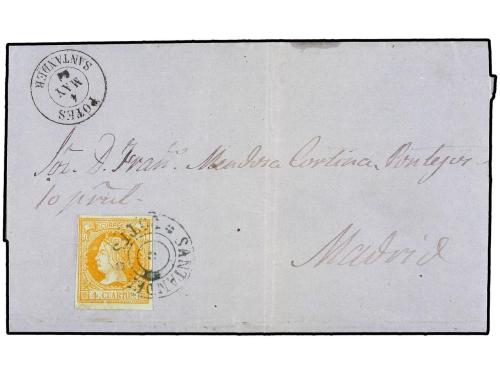 POTES
4
MAY
SANTANDER
Sor. D. Fran.co Mendosa Cortina Pontejos
10 pral.
Madrid
4 CUARTOS
POTES
SANTANDER